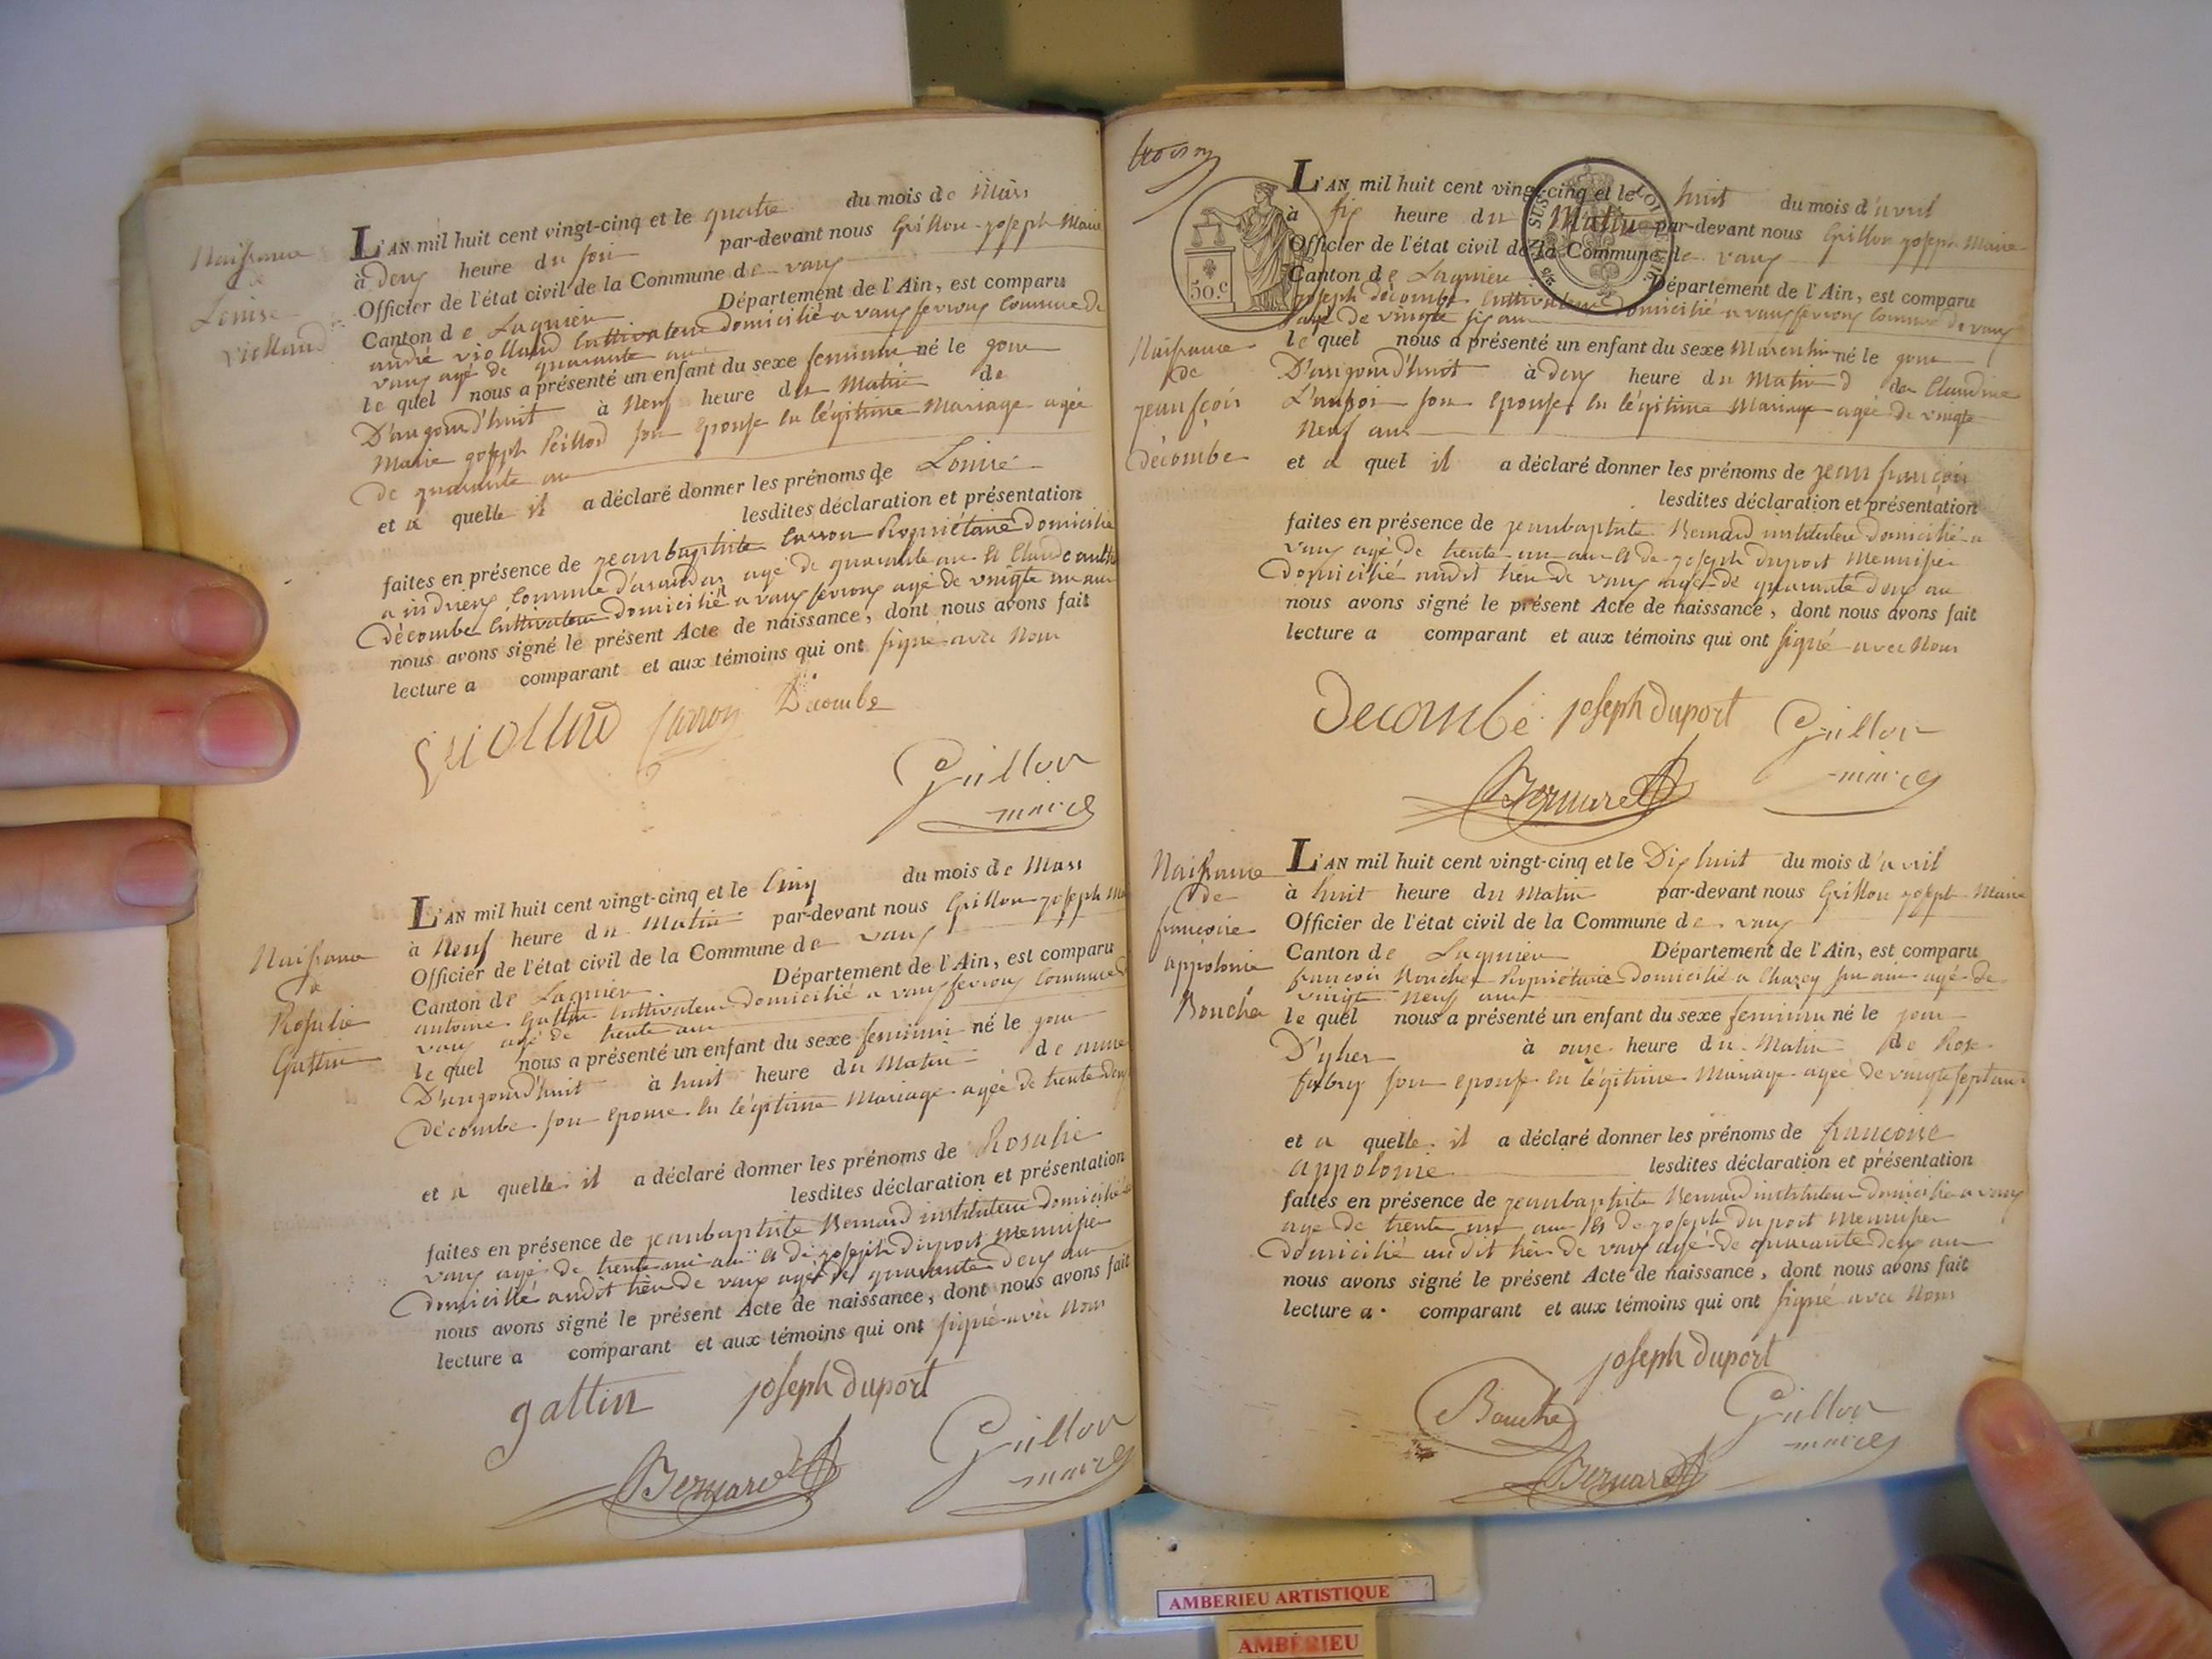 Naissance
de
Louise
Violland
L'AN mil huit cent vingt-cinq et le quatre du mois de Mars
à deux heure du soir par-devant nous Grillon joseph Maire
Officier de l'état civil de la Commune de vaux
Canton de Lagnieu Département de l'Ain, est comparu
andré violland Cultivateur domicilié a vaux fevroux Commune de
vaux agé de quarante ans
le quel nous a présenté un enfant du sexe feminin né le jour
D'aujourd'huit à Neuf heure du Matin de
Marie joseph Peillod son Epouse en légitime Mariage agée
de quarante ans
et a quelle il a déclaré donner les prénoms de Louise
lesdites déclaration et présentation
faites en présence de jeanbaptiste Carron Propriétaire Domicilié
a indrieux Commune d'arandas agé de quarante ans Et Claude
décombe Cultivateur Domicilié a vaux fevroux agé de vingte un ans
nous avons signé le présent Acte de naissance, dont nous avons fait
lecture a comparant et aux témoins qui ont signé avec Nous
violland Carron Décombe
Grillon
maire
Naissance
de
Rosalie
Gattin
L'AN mil huit cent vingt-cinq et le Cinq du mois de Mars
à Neuf heure du Matin par-devant nous Grillon joseph
Officier de l'état civil de la Commune de vaux
Canton de Lagnieu Département de l'Ain, est comparu
antoine Gattin Cultivateur domicilié a vaux fevroux Commune
vaux agé de trente ans
le quel nous a présenté un enfant du sexe feminin né le jour
D'aujourd'huit à huit heure du Matin de
décombe son Epouse En légitime Mariage agée de trente deux
et a quelle il a déclaré donner les prénoms de Rosalie
lesdites déclaration et présentation
faites en présence de jeanbaptiste Bernard instituteur domicilié a
vaux agé de trente un ans Et de joseph duport Menuisier
Domicilié audit lieu de vaux agé de quarante deux ans
nous avons signé le présent Acte de naissance, dont nous avons fait
lecture a comparant et aux témoins qui ont signé avec Nous
gattin joseph duport
Bernard Grillon
maire
SUS LOI 1816
50.c
Naissance
de
jean
décombe
L'AN mil huit cent vingt-cinq et le huit du mois d'avril
à six heure du Matin par-devant nous Grillon joseph Maire
Officier de l'état civil de la Commune de vaux
Canton de Lagnieu Département de l'Ain, est comparu
joseph décombe Cultivateur Domicilié a vaux fevroux Commune de vaux
agé de vingte six ans
le quel nous a présenté un enfant du sexe Masculin né le jour
D'aujourd'huit à deux heure du Matin de Claudine
son Epouse En légitime Mariage agée de vingte
Neuf ans
et a quel il a déclaré donner les prénoms de jean francois
lesdites déclaration et présentation
faites en présence de jeanbaptiste Bernard instituteur domicilié a
vaux agé de trente un ans Et de joseph duport Menuisier
Domicilié audit lieu de vaux agé de quarante deux ans
nous avons signé le présent Acte de naissance, dont nous avons fait
lecture a comparant et aux témoins qui ont signé avec Nous
Decombe joseph duport Grillon
Bernard maire
Naissance
de
francoise
appolonie
Bouché
L'AN mil huit cent vingt-cinq et le Dix huit du mois d'avril
à huit heure du Matin par-devant nous Grillon joseph Maire
Officier de l'état civil de la Commune de vaux
Canton de Lagnieu Département de l'Ain, est comparu
francois Bouché Propriétaire Domicilié a Chazey sur ain agé de
vingte Neuf ans
le quel nous a présenté un enfant du sexe feminin né le jour
D'yher à onze heure du Matin de Rose
fabry son epouse En légitime Mariage agée de vingte sept ans
et a quelle il a déclaré donner les prénoms de francoise
appolonie lesdites déclaration et présentation
faites en présence de jeanbaptiste Bernard instituteur domicilié a vaux
agé de trente un ans Et de joseph duport Menuisier
Domicilié audit lieu de vaux agé de quarante deux ans
nous avons signé le présent Acte de naissance, dont nous avons fait
lecture a comparant et aux témoins qui ont signé avec Nous
joseph duport
Bouché Grillon
Bernard maire
AMBERIEU ARTISTIQUE
AMBÉRIEU